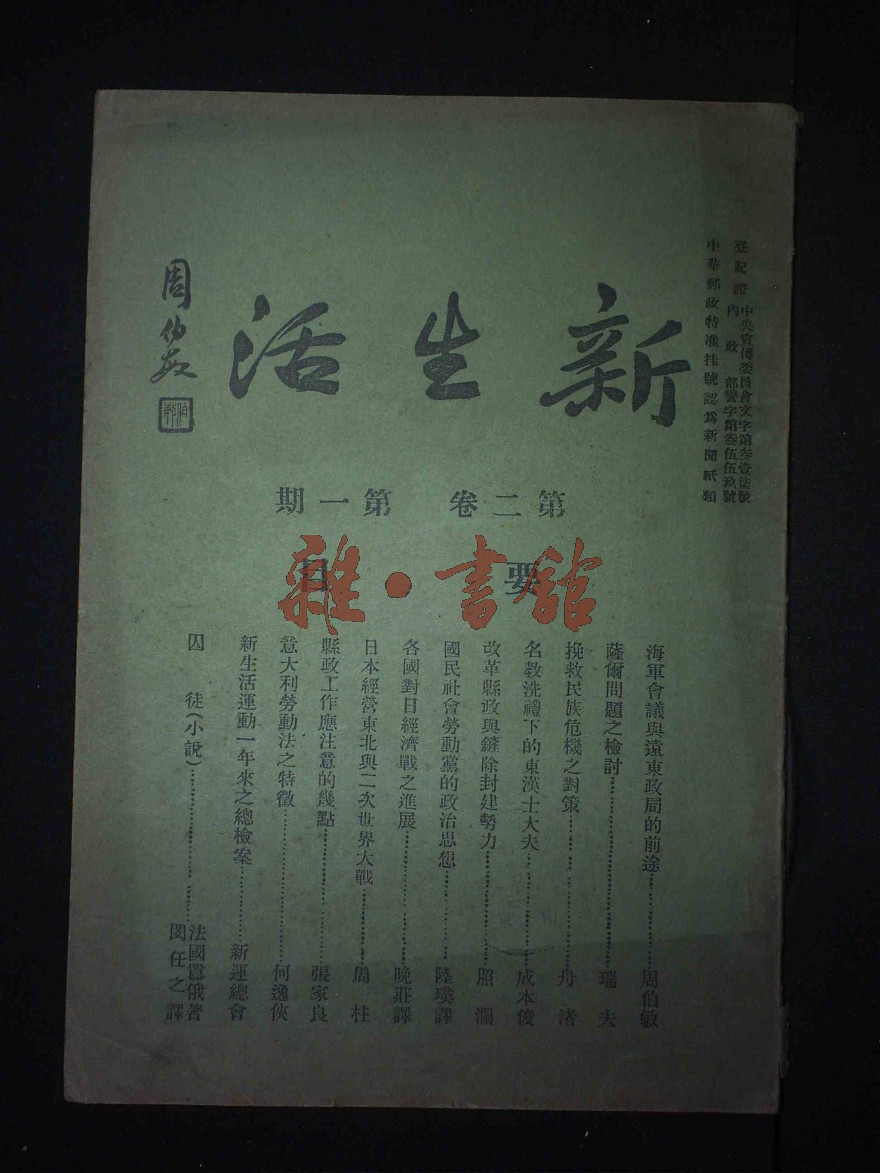 登記證 中央宣傳委員會文字第叁壹柒號
內政部警字第叁伍伍玖號
中華郵政特准挂號認爲新聞紙類
新生活
周伯敏
第二卷 第一期
要目
雜·書館
海軍會議與遠東政局的前途 周伯敏
薩爾問題之檢討 瑞夫
挽救民族危機之對策 舟渚
名教洗禮下的東漢士大夫 成本俊
改革縣政與鏟除封建勢力 照瀾
國民社會勞動黨的政治思想 陸璞譯
各國對日經濟戰之進展 晚莊譯
日本經營東北與二次世界大戰 周柱
縣政工作應注意的幾點 張家良
意大利勞動法之特徵 何逸俠
新生活運動一年來之總檢案 新運總會
囚徒(小說) 法國囂俄著
閔任之譯